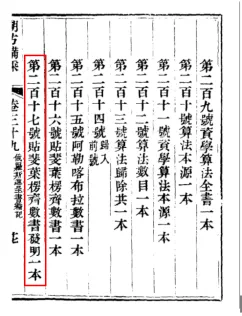 第二百九號資學算法全書一本
第二百十號算法本源一本
第二百十一號資學算法本源一本
第二百十二號算法數目一本
第二百十三號算法歸除共一本
第二百十四號歸入前號
第二百十五號阿勒喀布拉數書一本
第二百十六號貼斐葉楞齊數書一本
第二百十七號貼斐葉楞齊數書發明一本
朔方備乘 卷三十九 俄羅斯進呈書籍記